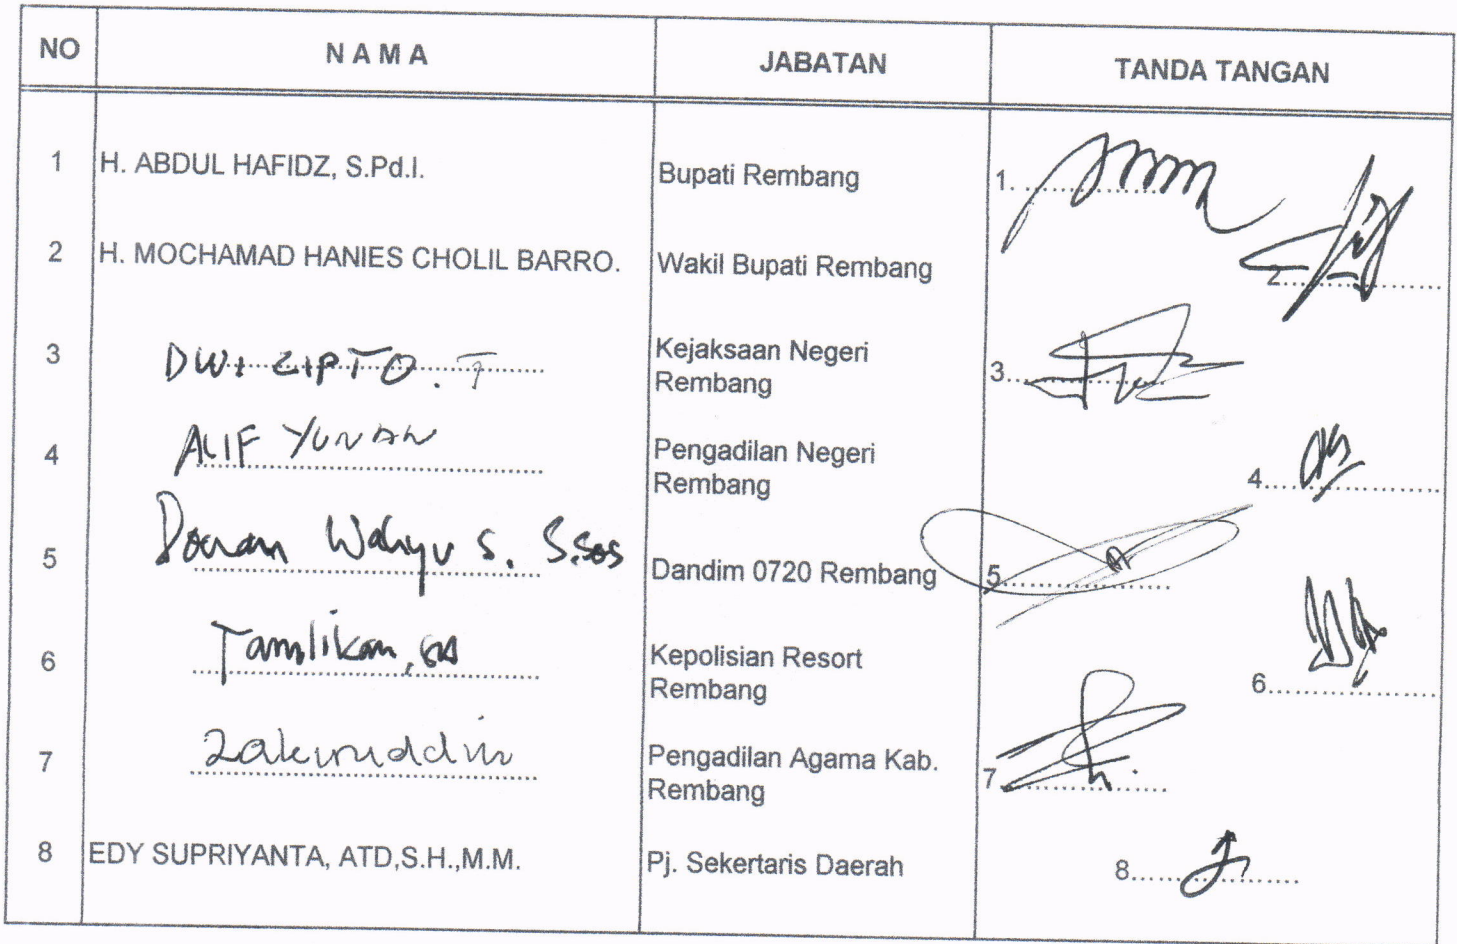 NO N A M A JABATAN TANDA TANGAN
1 H. ABDUL HAFIDZ, S.Pd.I. Bupati Rembang 1. ....................
2 H. MOCHAMAD HANIES CHOLIL BARRO. Wakil Bupati Rembang 2....................
3 DWI CIPTO. T Kejaksaan Negeri
Rembang 3....................
4 ALIF YUNAN Pengadilan Negeri
Rembang 4....................
5 Wahyu S. S.Sos Dandim 0720 Rembang 5....................
6 Tamlikan, Kepolisian Resort
Rembang 6....................
7 Zakiruddin Pengadilan Agama Kab.
Rembang 7....................
8 EDY SUPRIYANTA, ATD,S.H.,M.M. Pj. Sekertaris Daerah 8....................